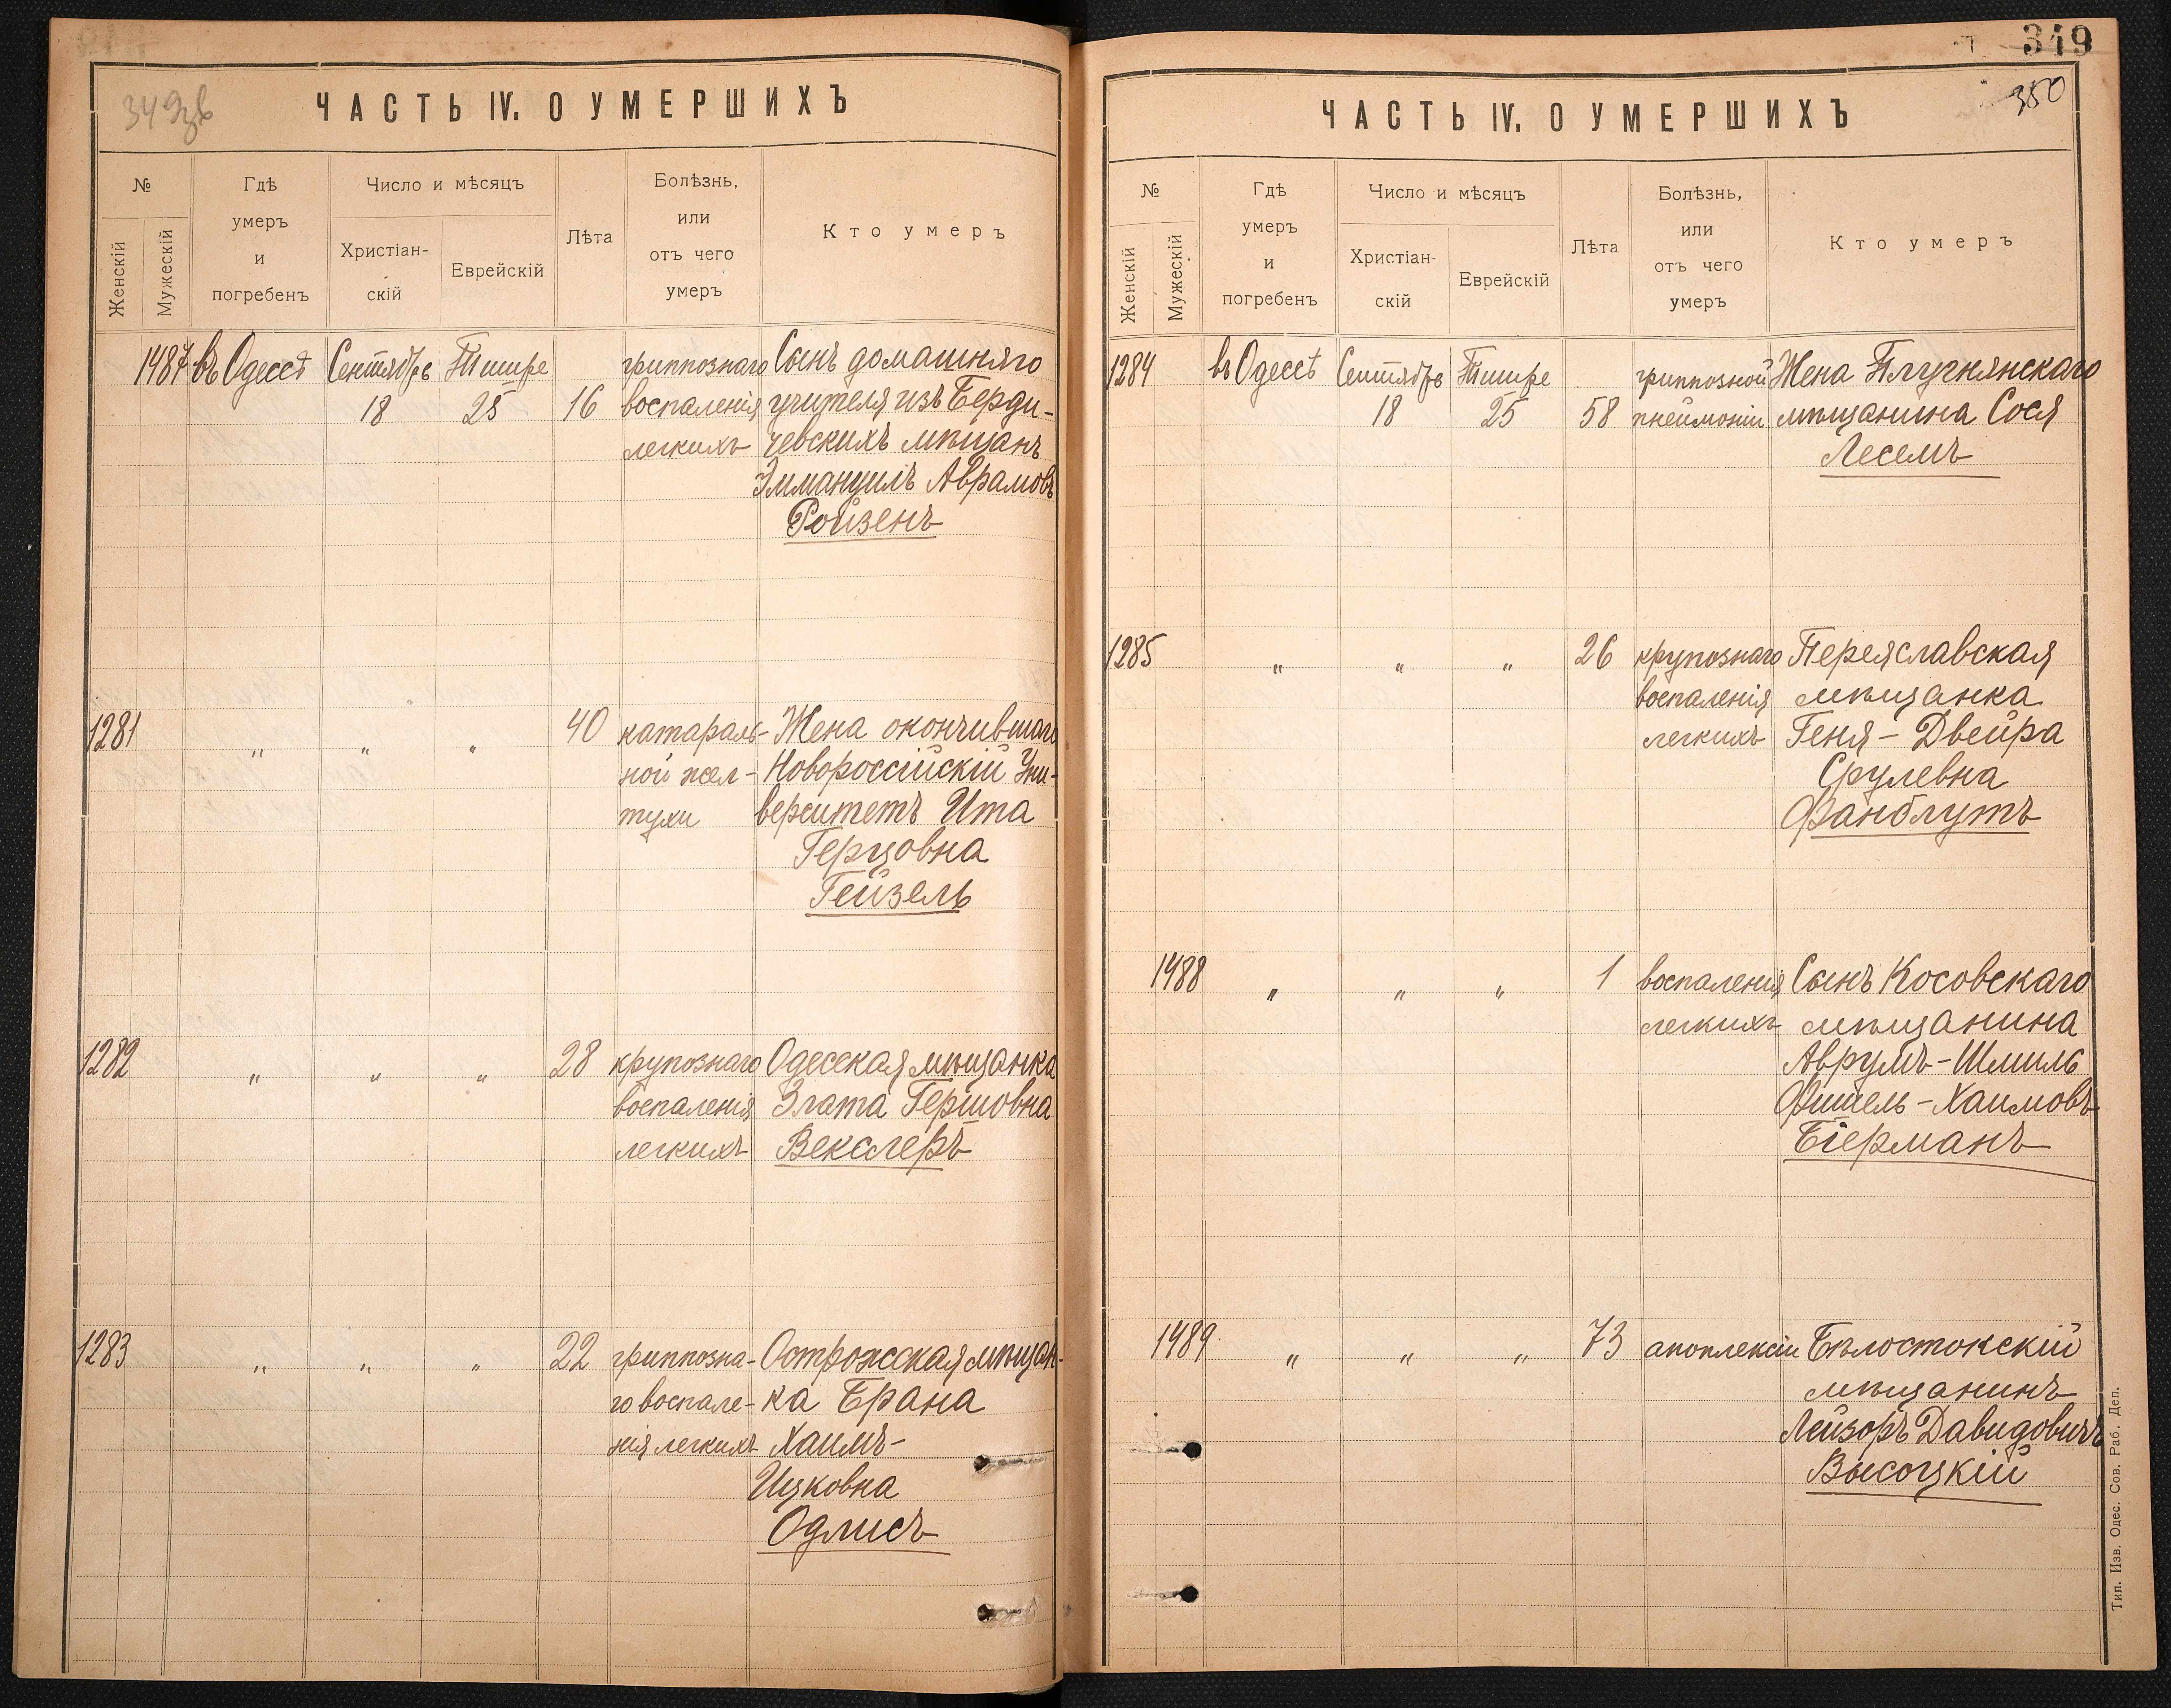 349
ЧАСТЬ IV. О УМЕРШИХЪ
№
Женскій
Мужескій
Гдѣ
умеръ
и
погребенъ
Число и мѣсяцъ
Христіан-
скій
Еврейскій
Лѣта
Болѣзнь,
или
отъ чего
умеръ
Кто умеръ
1487 въ Одессѣ Сентябрь Тишре гриппознаго Сынъ домашняго
18 25 16 воспаленія учителя изъ Берди-
легкихъ чевскихъ мѣщанъ
Эммануилъ Аврамовъ
Ройзенъ
1281 " " " 40 катараль- Жена окончившаго
ной жел- Новороссійскій Уни-
тухи верситетъ Ита
Герцовна
Гейзель
1282 " " " 28 крупознаго Одесская мѣщанка
воспаленія Злата Гершовна
легкихъ Векслеръ
1283 " " " 22 гриппозна- Острожская мѣщан-
го воспале- ка Брана
нія легкихъ Хаимъ-
Ицковна
Одлисъ
349
350
ЧАСТЬ IV. О УМЕРШИХЪ
№
Женскій
Мужескій
Гдѣ
умеръ
и
погребенъ
Число и мѣсяцъ
Христіан-
скій
Еврейскій
Лѣта
Болѣзнь,
или
отъ чего
умеръ
Кто умеръ
1284 въ Одессѣ Сентябрь Тишре гриппозной Жена
18 25 58 пнеймоніи мѣщанина Сося
Лесемъ
1285 " " " 26 крупознаго Переяславская
воспаленія мѣщанка
легкихъ Геня-Двейра
Срулевна
Фанблутъ
1488 " " " 1 воспаленія Сынъ Косовскаго
легкихъ мѣщанина
Аврумъ-Шмиль
Фишель-Хаимовъ
Біерманъ
1489 " " " 73 апоплексіи Бѣлостокскій
мѣщанинъ
Лейзоръ Давидовичъ
Высоцкій
Тип. Изв. Одес. Сов. Раб. Деп.